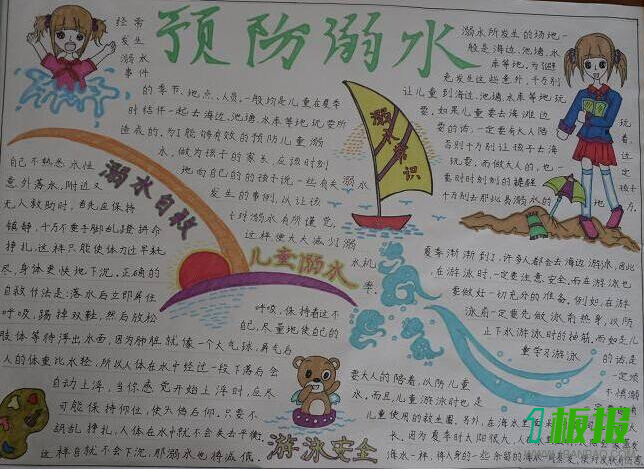 预防溺水
经常
发生
溺水
事件
的季节、地点、人员,一般均是儿童在夏季
时结伴一起去海边、池塘、水库等地玩耍所
造成的,为了能够有效的预防儿童溺
水,做为孩子的家长,应该时刻
地向自己的孩子说一些有关溺水
发生的事例,以让孩
子对溺水有所谨觉,
这样便大大减少溺
水机
率。
溺水自救
自己不熟悉水性
意外落水,附近又
无人救助时,首先应保持
镇静,千万不要手脚乱蹬拼命
挣扎,这样只能使体力过早耗
尽,身体更快地下沉。正确的
自救作法是:落水后立即屏住
呼吸,踢掉双鞋,然后放松
肢体等待浮出水面,因为肺脏就像一个大气球,屏气后
人的体重比水轻,所以人体在水中经过一段下落后会
自动上浮。当你感觉开始上浮时,应尽
可能保持仰位,使头偏后仰。只要不
胡乱挣扎,人体在水中就不会失去平衡。
这样自就不会下沉,那溺水也将减低。
儿童溺水
呼吸,保持着这不
己,尽量地使自己的
溺水常识
溺水所发生的场地一
般是海边、池塘、水
库等地,为了避
免发生这些意外,千万别
让儿童到海边、池塘、水库等地玩
耍。如果儿童要去海滩边
耍的话,一定要有大人陪
否则千万别让孩子去海
玩耍,而做大人的,也一
要时时刻刻的提醒
千万别去那些易溺水的
玩
着,
过
定
孩子
地
夏季渐渐到了,许多人都会去海边游泳,因此
在游泳时,一定要注意安全。而在游泳也
要做好一切充分的准备。例如,在游
泳前一定要先做泳前热身,以防
止下水游泳时的抽筋,而如是儿
童学习游泳
的话,是
一定
要大人的陪着,以防儿童
水,而且,儿童游泳时也是
儿童使用的救生圈。另外,在海水里面
水。因为夏季时太阳很大,人
海水一样,将人身的一些东
游泳安全
1板报